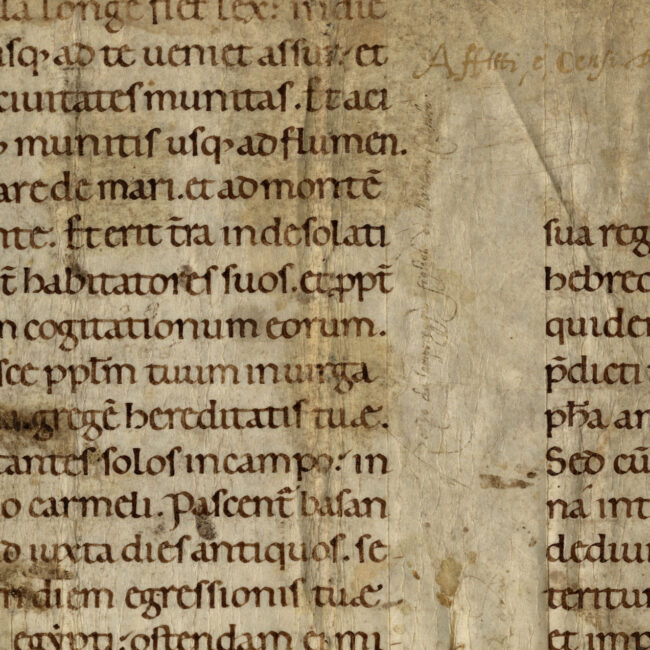 la longe fiet lex: in die
usq; ad te ueniet assur. et
ciuitates munitas. Et a ci
munitis usq; ad flumen.
are de mari. et ad montē
nte. Et erit t̄ra in desolati
t̄ habitatores suos. et ꝓpt̄
n cogitationum eorum.
sce ppl̄m tuum in uirga
gregē hereditatis tuæ.
tantes solos in campo: in
o carmeli. Pascent̄ basan
d iuxta dies antiquos. se
n diem egressionis tuæ
egỳpti: ostendam ei mi
Affitti e Censi
sua reg
hebreo
quide
p̄dicti
pħa an
Sed cū
na int
dediu
teritu
et imp